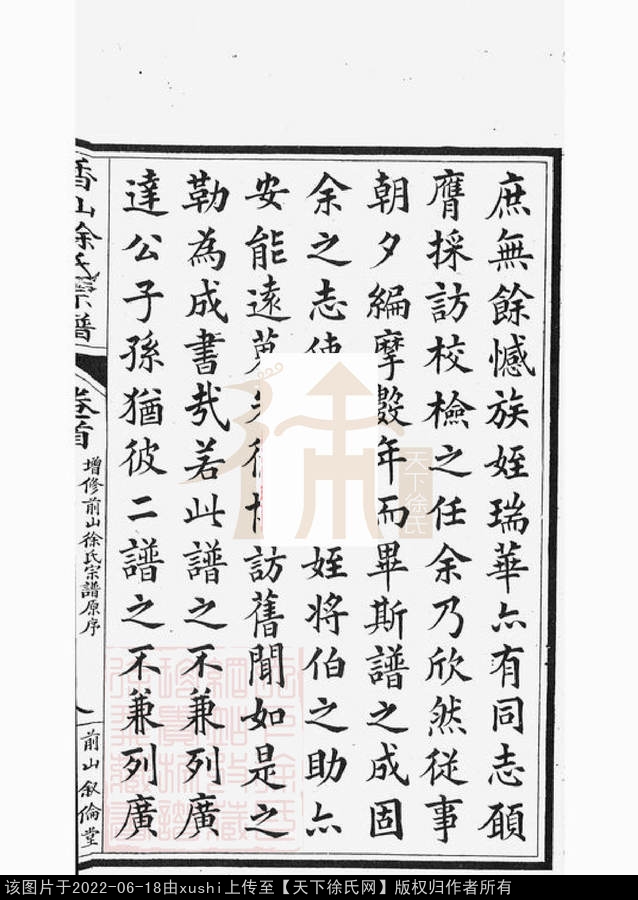 庶無餘憾族姪瑞華亦有同志願
膺採訪校檢之任余乃欣然從事
朝夕編摩數年而畢斯譜之成固
余之志 姪將伯之助亦
安能遠 訪舊聞如是之
勒為成書㢤若此譜之不兼列廣
達公子孫猶彼二譜之不兼列廣
香山徐氏宗譜
卷首
增修前山徐氏宗譜原序
前山叙倫堂
天下徐氏
该图片于2022-06-18由xushi上传至【天下徐氏网】版权归作者所有